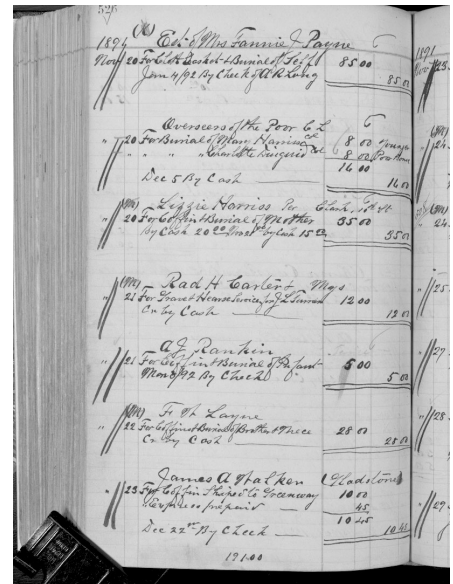 526
(W) Est of Mrs Fannie J Payne
1891
Nov 20 For Cloth Casket & Burial of Self 85 00
Jany 4/92 By Check of A R Long 85 00
Overseers of the Poor C L
" 20 For Burial of Mary Harriss 8 00
" " " Charlotte 8 00 Poor House
16 00
Dec 5 By Cash 16 00
Lizzie Harriss Per Clark
20 For Coffin & Burial of Mother 35 00
By Cash 20 00 By Cash 15 00 35 00
Rad H Carter & Mays
" 21 For Hearse Service for J L 12 00
Cr by Cash 12 00
A J Rankin
" 21 For Coffin & Burial of Infant 5 00
/92 By Check 5 00
Layne
" 22 For Coffin & Burial of Brother & Niece 28 00
Cr by Cash 28 00
James A Walker (Gladstone)
" 23 For Coffin Shiped to Greenway 10 00
Express prepaid 45
10 45
Dec 22nd By Check 10 45
191.00
1891
Nov
24
24
" 25
" 27
" 28
" 29